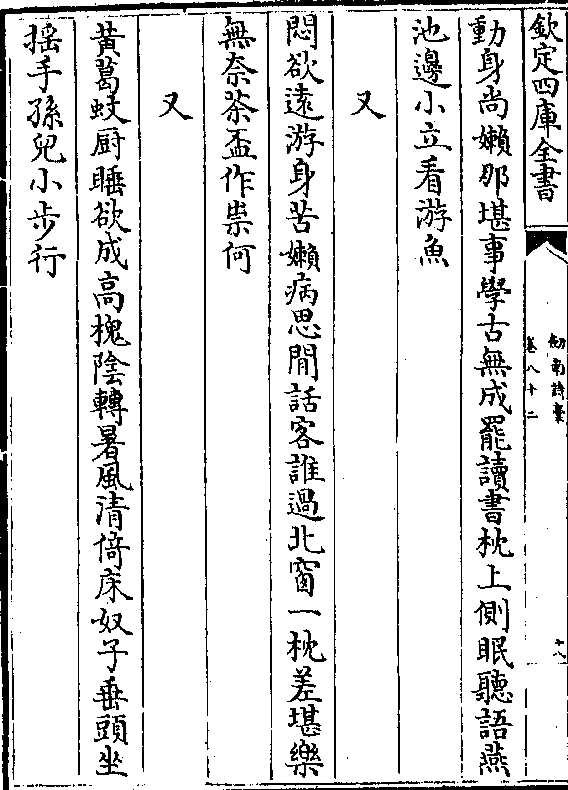 欽定四庫全書
劍南詩稾
卷八十二
十八
動身尚嬾那堪事學古無成罷讀書枕上側眠聽語燕
池邊小立看游魚
又
悶欲遠游身苦嬾病思閒話客誰過北窗一枕差堪樂
無奈茶盃作祟何
又
黃葛蚊厨睡欲成高槐陰轉暑風清倚床奴子垂頭坐
揺手孫兒小步行